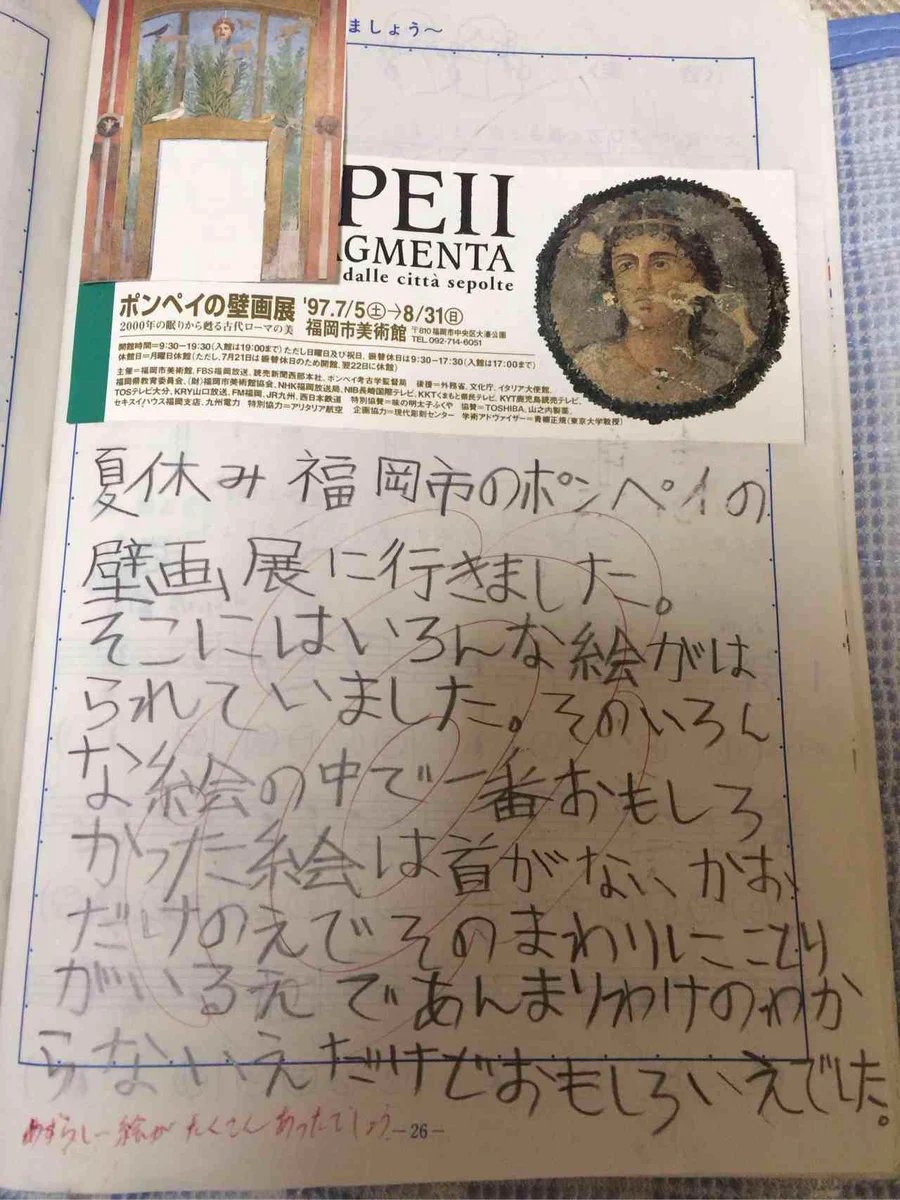 ましょう〜
PEII
AGMENTA
dalle città sepolte
ポンペイの壁画展 '97.7/5㊏→8/31㊐
2000年の眠りから甦る古代ローマの美 福岡市美術館 〒810 福岡市中央区大濠公園 TEL.092-714-6051
開館時間=9:30−19:30(入館は19:00まで)ただし日曜日及び祝日、振替休日は9:30−17:30(入館は17:00まで)
休館日=月曜日休館(ただし、7月21日は振替休日のため開館、翌22日に休館)
主催=福岡市美術館、FBS福岡放送、読売新聞西部本社、ポンペイ考古学監督局 後援=外務省、文化庁、イタリア大使館、
福岡県教育委員会、(財)福岡市美術館協会、NHK福岡放送局、NIB長崎国際テレビ、KKTくまもと県民テレビ、KYT鹿児島読売テレビ、
TOSテレビ大分、KRY山口放送、FM福岡、JR九州、西日本鉄道 特別協賛=味の明太子ふくや 協賛=TOSHIBA、山之内製薬、
セキスイハウス福岡支店、九州電力 特別協力=アリタリア航空 企画協力=現代彫刻センター 学術アドヴァイザー=青柳正規(東京大学教授)
夏休み 福岡市のポンペイの
壁画展に行きました。
そこにはいろんな絵がは
られていました。そのいろん
な絵の中で一番おもしろ
かった絵は首がない、かお
だけのえでそのまわりにことり
がいるえであんまりわけのわか
らないえだけどおもしろいえでした。
めずらしー絵がたくさんあったでしょう
−26−